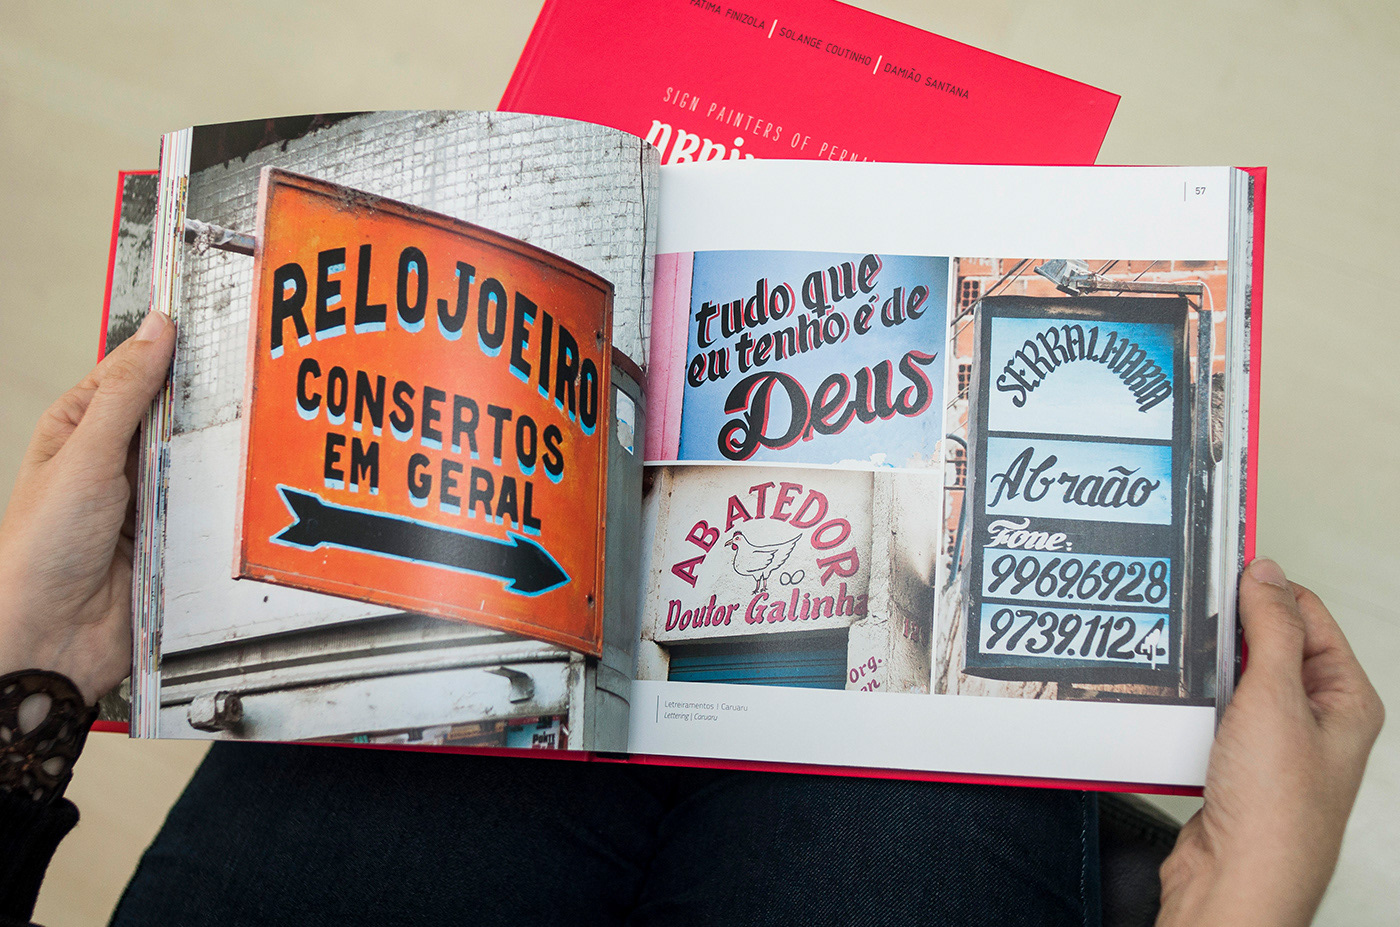 FÁTIMA FINIZOLA | SOLANGE COUTINHO | DAMIÃO SANTANA
SIGN PAINTERS OF
RELOJOEIRO
CONSERTOS
EM GERAL
57
tudo que
eu tenho é de
Deus
ABATEDOR
Doutor Galinha
org.
SERRALHARIA
Abraão
Fone:
9969.6928
9739.1124
Letreiramentos | Caruaru
Lettering | Caruaru